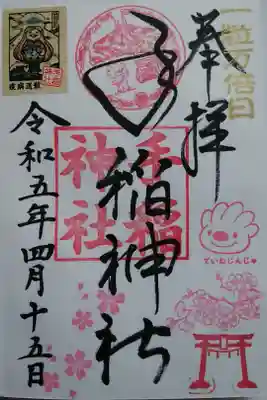 一粒万倍日
奉拝
手稲神社
手稲
神社
ていねじんじゃ
令和五年四月十五日
疾病退散